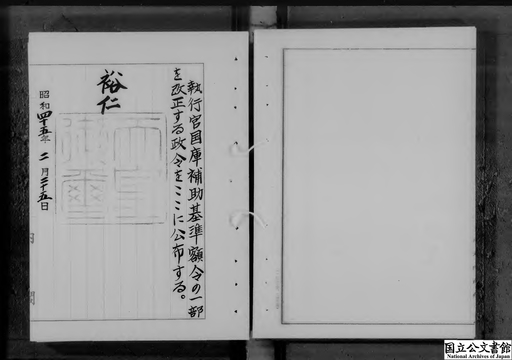 執行官国庫補助基準額令の一部
を改正する政令をここに公布する。
裕仁
昭和四十五年二月二十五日
国立公文書館
National Archives of Japan